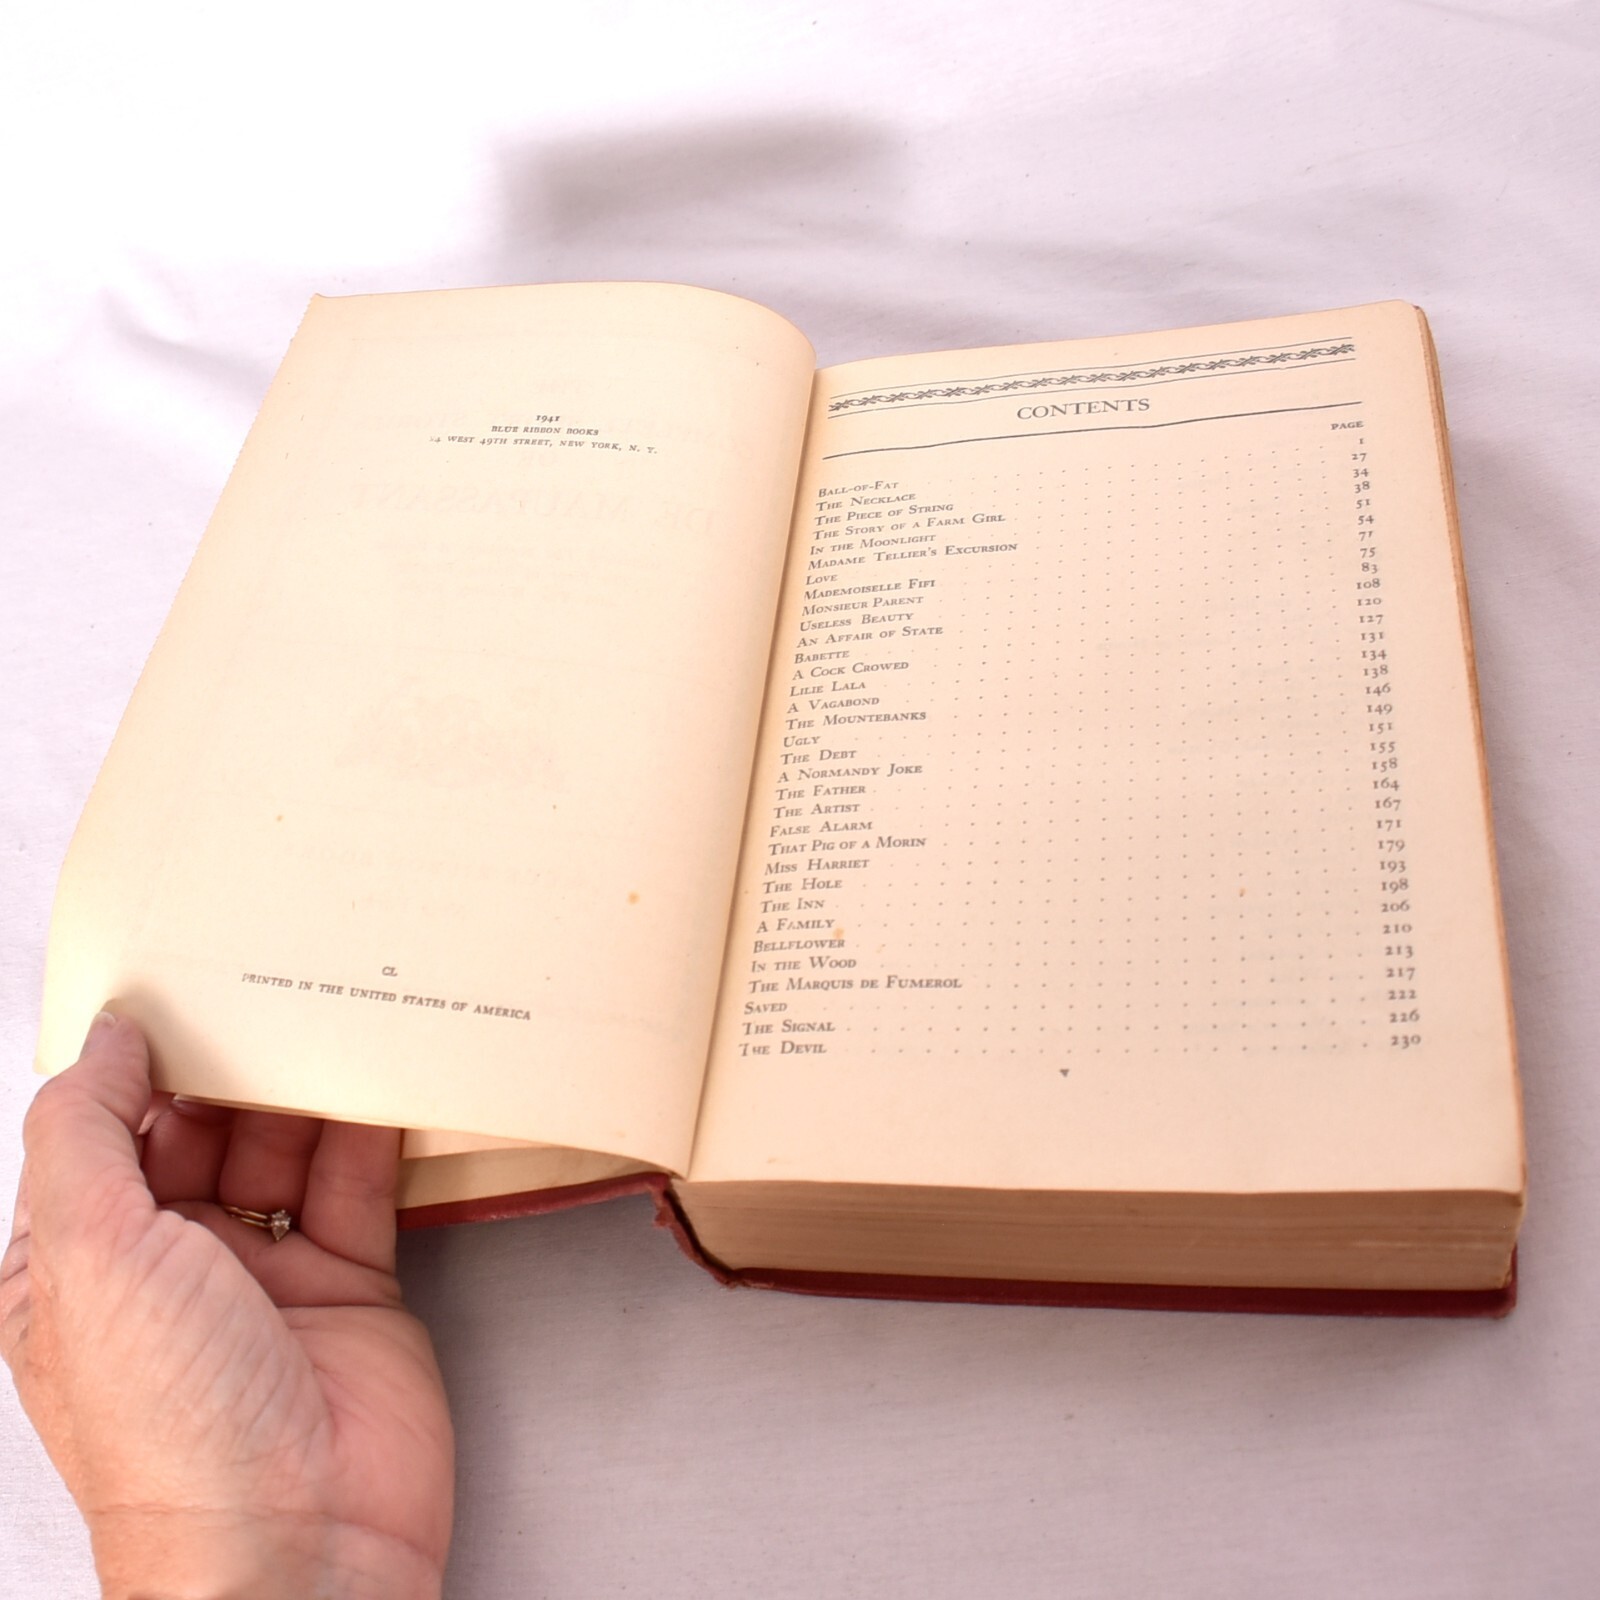 1941
BLUE RIBBON BOOKS
14 WEST 49TH STREET, NEW YORK, N. Y.
CL
PRINTED IN THE UNITED STATES OF AMERICA
CONTENTS
PAGE
BALL-OF-FAT 1
THE NECKLACE 27
THE PIECE OF STRING 34
THE STORY OF A FARM GIRL 38
IN THE MOONLIGHT 51
MADAME TELLIER'S EXCURSION 54
LOVE 71
MADEMOISELLE FIFI 75
MONSIEUR PARENT 83
USELESS BEAUTY 108
AN AFFAIR OF STATE 120
BABETTE 127
A COCK CROWED 131
LILIE LALA 134
A VAGABOND 138
THE MOUNTEBANKS 146
UGLY 149
THE DEBT 151
A NORMANDY JOKE 155
THE FATHER 158
THE ARTIST 164
FALSE ALARM 167
THAT PIG OF A MORIN 171
MISS HARRIET 179
THE HOLE 193
THE INN 198
A FAMILY 206
BELLFLOWER 210
IN THE WOOD 213
THE MARQUIS DE FUMEROL 217
SAVED 222
THE SIGNAL 226
THE DEVIL 230